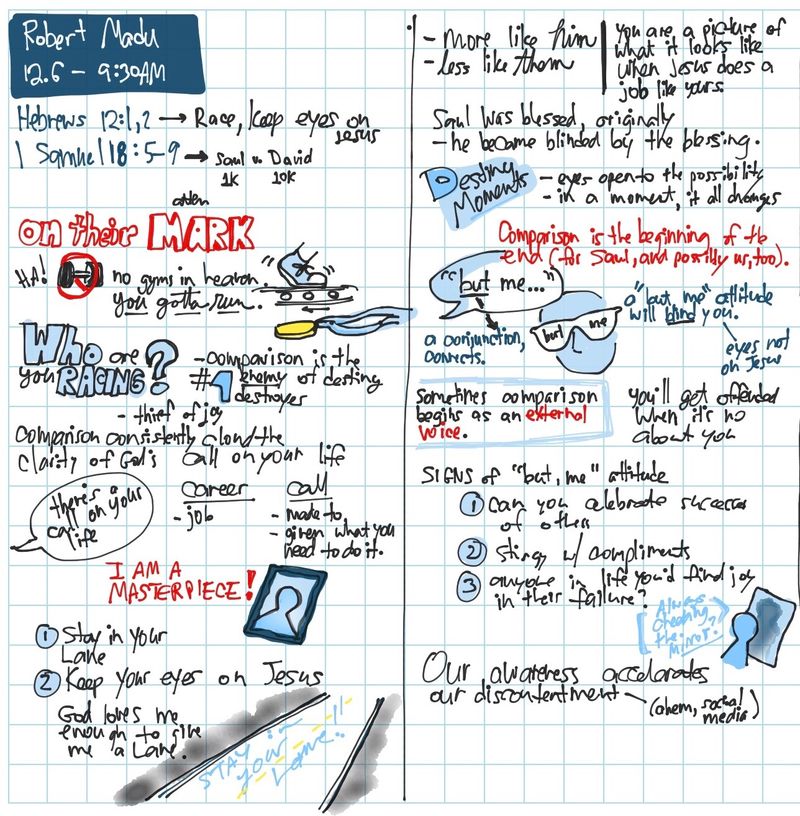 Robert Madu
12.6 - 9:30AM
Hebrews 12:1,2 → Race, keep eyes on Jesus
1 Samuel 18:5-9 → Saul v. David
1k 10k
ON their MARK
HA! no gyms in heaven
you gotta run.
Who are
you RACING?
- comparison is the
#1 enemy of destiny
destroyer
- thief of joy
comparison consistently cloud the
clarity of God's call on your life
there's a
call on your
life
career
- job
call
- made to
- given what you
need to do it.
I AM A
MASTERPIECE!
1 Stay in your
Lane
2 Keep your eyes on Jesus
God loves me
enough to give
me a Lane.
STAY in
your
Lane!!
- more like him
- less like them
you are a picture of
what it looks like
when Jesus does a
job like yours
Saul was blessed, originally
- he became blinded by the blessing.
Destiny
Moments
- eyes open to the possibility
- in a moment, it all changes
Comparison is the beginning of the
end (for Saul, and possibly us, too).
"but me..."
a conjunction,
connects.
but me
a "but, me" attitude
will blind you.
eyes not
on Jesus
Sometimes comparison
begins as an external
voice.
you'll get offended
when it's no
about you
SIGNS of "but, me" attitude
1 Can you celebrate success
of others
2 Stingy w/ compliments
3 anyone in life you'd find joy
in their failure?
Always
checking
the
mirror?
Our awareness accelerates
our discontentment - (ahem, social
media)